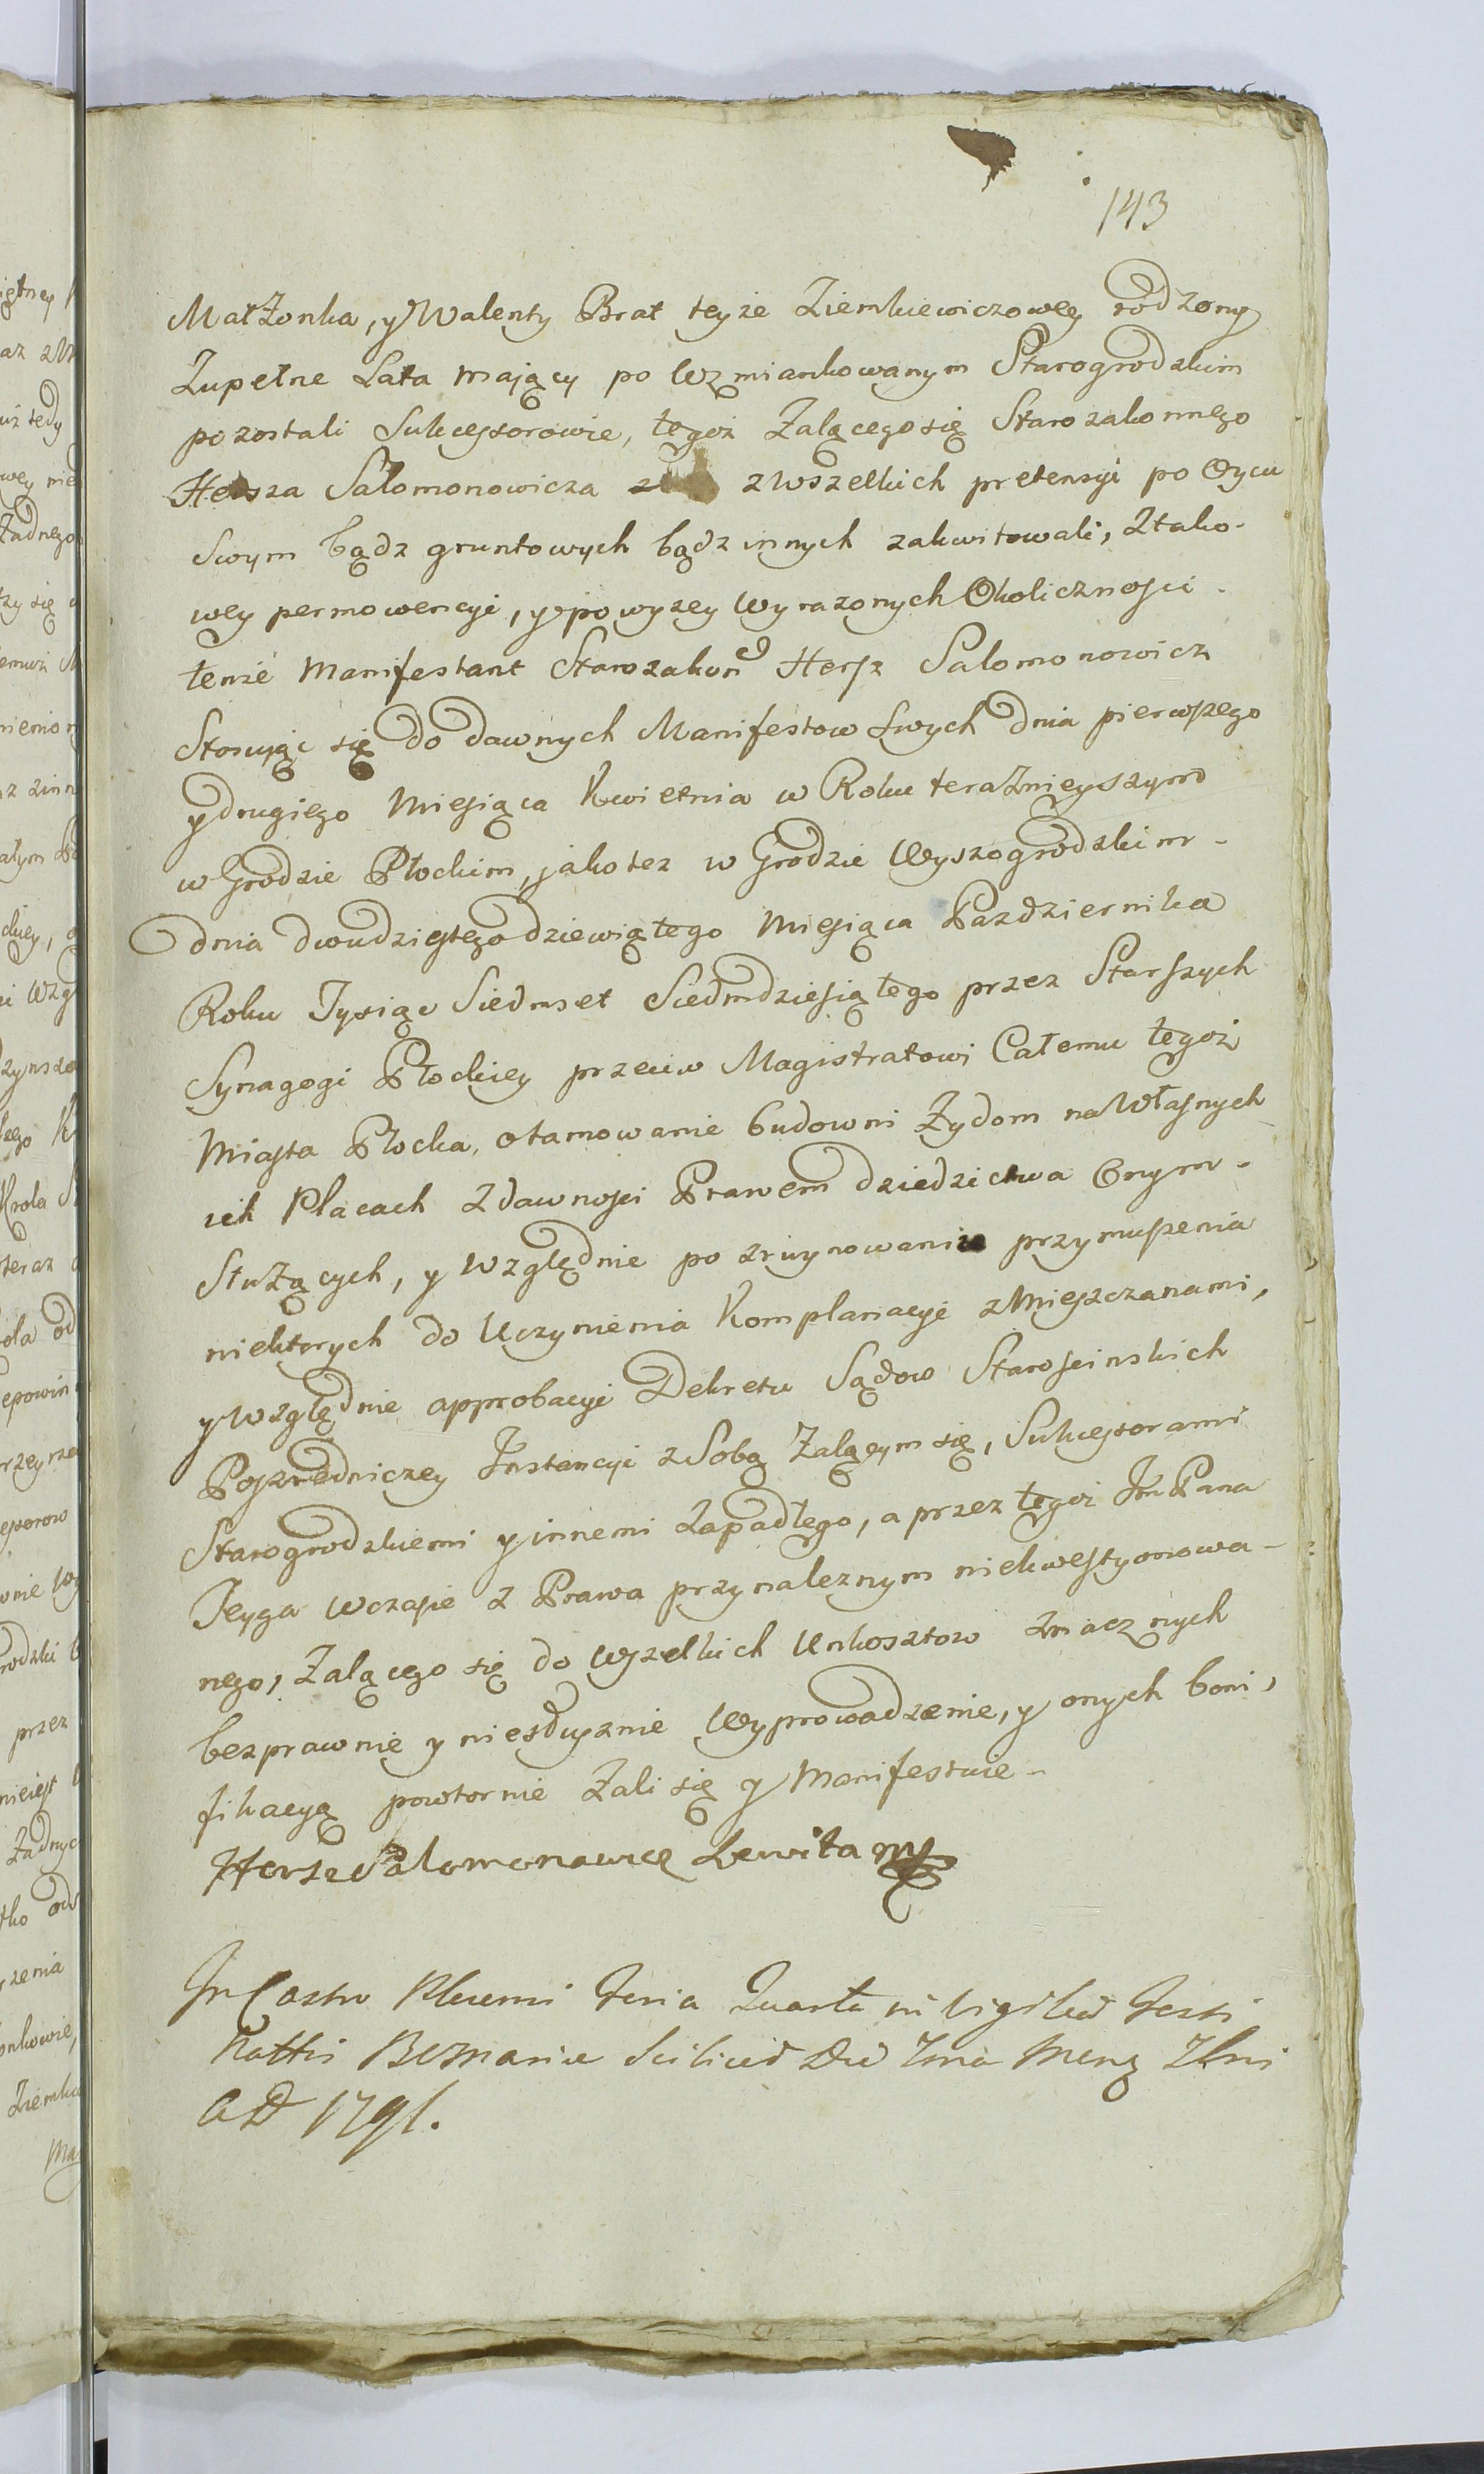 143
Małżonka, y Walenty Brat teyże Ziemkiewiczowey rodzony
Zupełne Lata mający po Wzmiankowanym Starogrodzkim
pozostali Sukcessorowie, tegoż Żalącego się Starozakonnego
Hersza Salomonowicza z wszelkich pretensyi po Oycu
Swym bądz gruntowych bądz innych zakwitowali, Ztako-
wey permowencyi, y powyzey Wyrazonych Okolicznosci
tenże Manifestant Starozakon Hersz Salomonowicz
Stosuiąc się do dawnych Manifestow Swych dnia pierwszego
y drugiego Miesiąca Kwietnia w Roku teraźnieyszym
w Grodzie Płockim, jakotez w Grodzie Wyszogrodzkim -
dnia dwudziestego dziewiątego Miesiąca Pazdziernika
Roku Tysiąc Siedmset Siedmdziesiątego przez Starszych
Synagogi Płockiey przeciw Magistratowi Całemu tegoż
Miasta Płocka, otamowanie budowni Żydom na Własnych
ich Placach Zdawnosci Prawem dziedzictwa Onym -
Służących, y Względnie po zruynowaniu przymuszenia
niektorych do Uczynienia Komplanacyi z Mieszczanami,
y Względnie approbacyi Dekretu Sądow Staroscinskich
Poszredniczey Instancyi z Sobą Żalącym się, Sukcessorami
Starogrodzkiemi y innemi Zapadłego, a przez tegoż Im Pana
Ilyga Wczasie z Prawa przynaleznym niekwestyonowa-
nego, Żalącego się do Wszelkich Unkosztow znacznych
bezprawnie y niesłusznie Wyprowadzenie, y onych boni,
fikacyą powtornie Żali się y Manifestuie -
Hersz Salomonawicz Lewita mp
In Castro Plocensi Feria Quarta in Vigilia Festi
Nattis BVMariae Scilicet Die 7ma Mens 7bris
A D 1791.